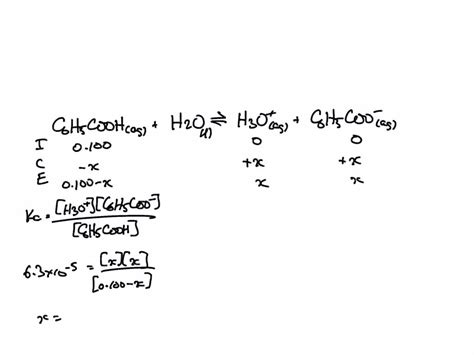 C6H5COOH(aq) + H2O(l) ⇌ H3O+(aq) + C6H5COO-(aq)
I 0.100 0 0
C -x +x +x
E 0.100-x x x
Kc = [H3O+][C6H5COO-] / [C6H5COOH]
6.3x10^-5 = [x][x] / [0.100-x]
x =